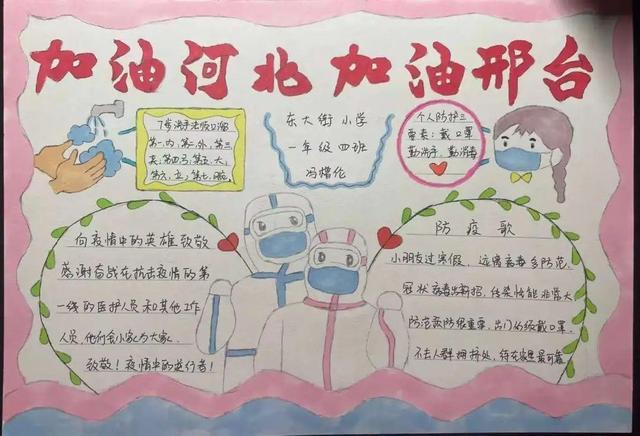 加油河北 加油邢台
7步洗手法顺口溜
第一内,第二外,第三
夹,第四弓,第五,大,
第六,立,第七,腕
东大街小学
一年级四班
个人防护三
要素:戴口罩
勤洗手,勤消毒
向疫情中的英雄致敬
感谢奋战在抗击疫情的第
一线的医护人员和其他工作
人员,他们舍小家为大家
致敬!疫情中的逆行者!
防疫歌
小朋友过寒假,远离病毒多防范.
冠状病毒出新招,传染性能非常大
防范预防很重要,出门必须戴口罩.
不去人群拥挤处,待在家里最可靠